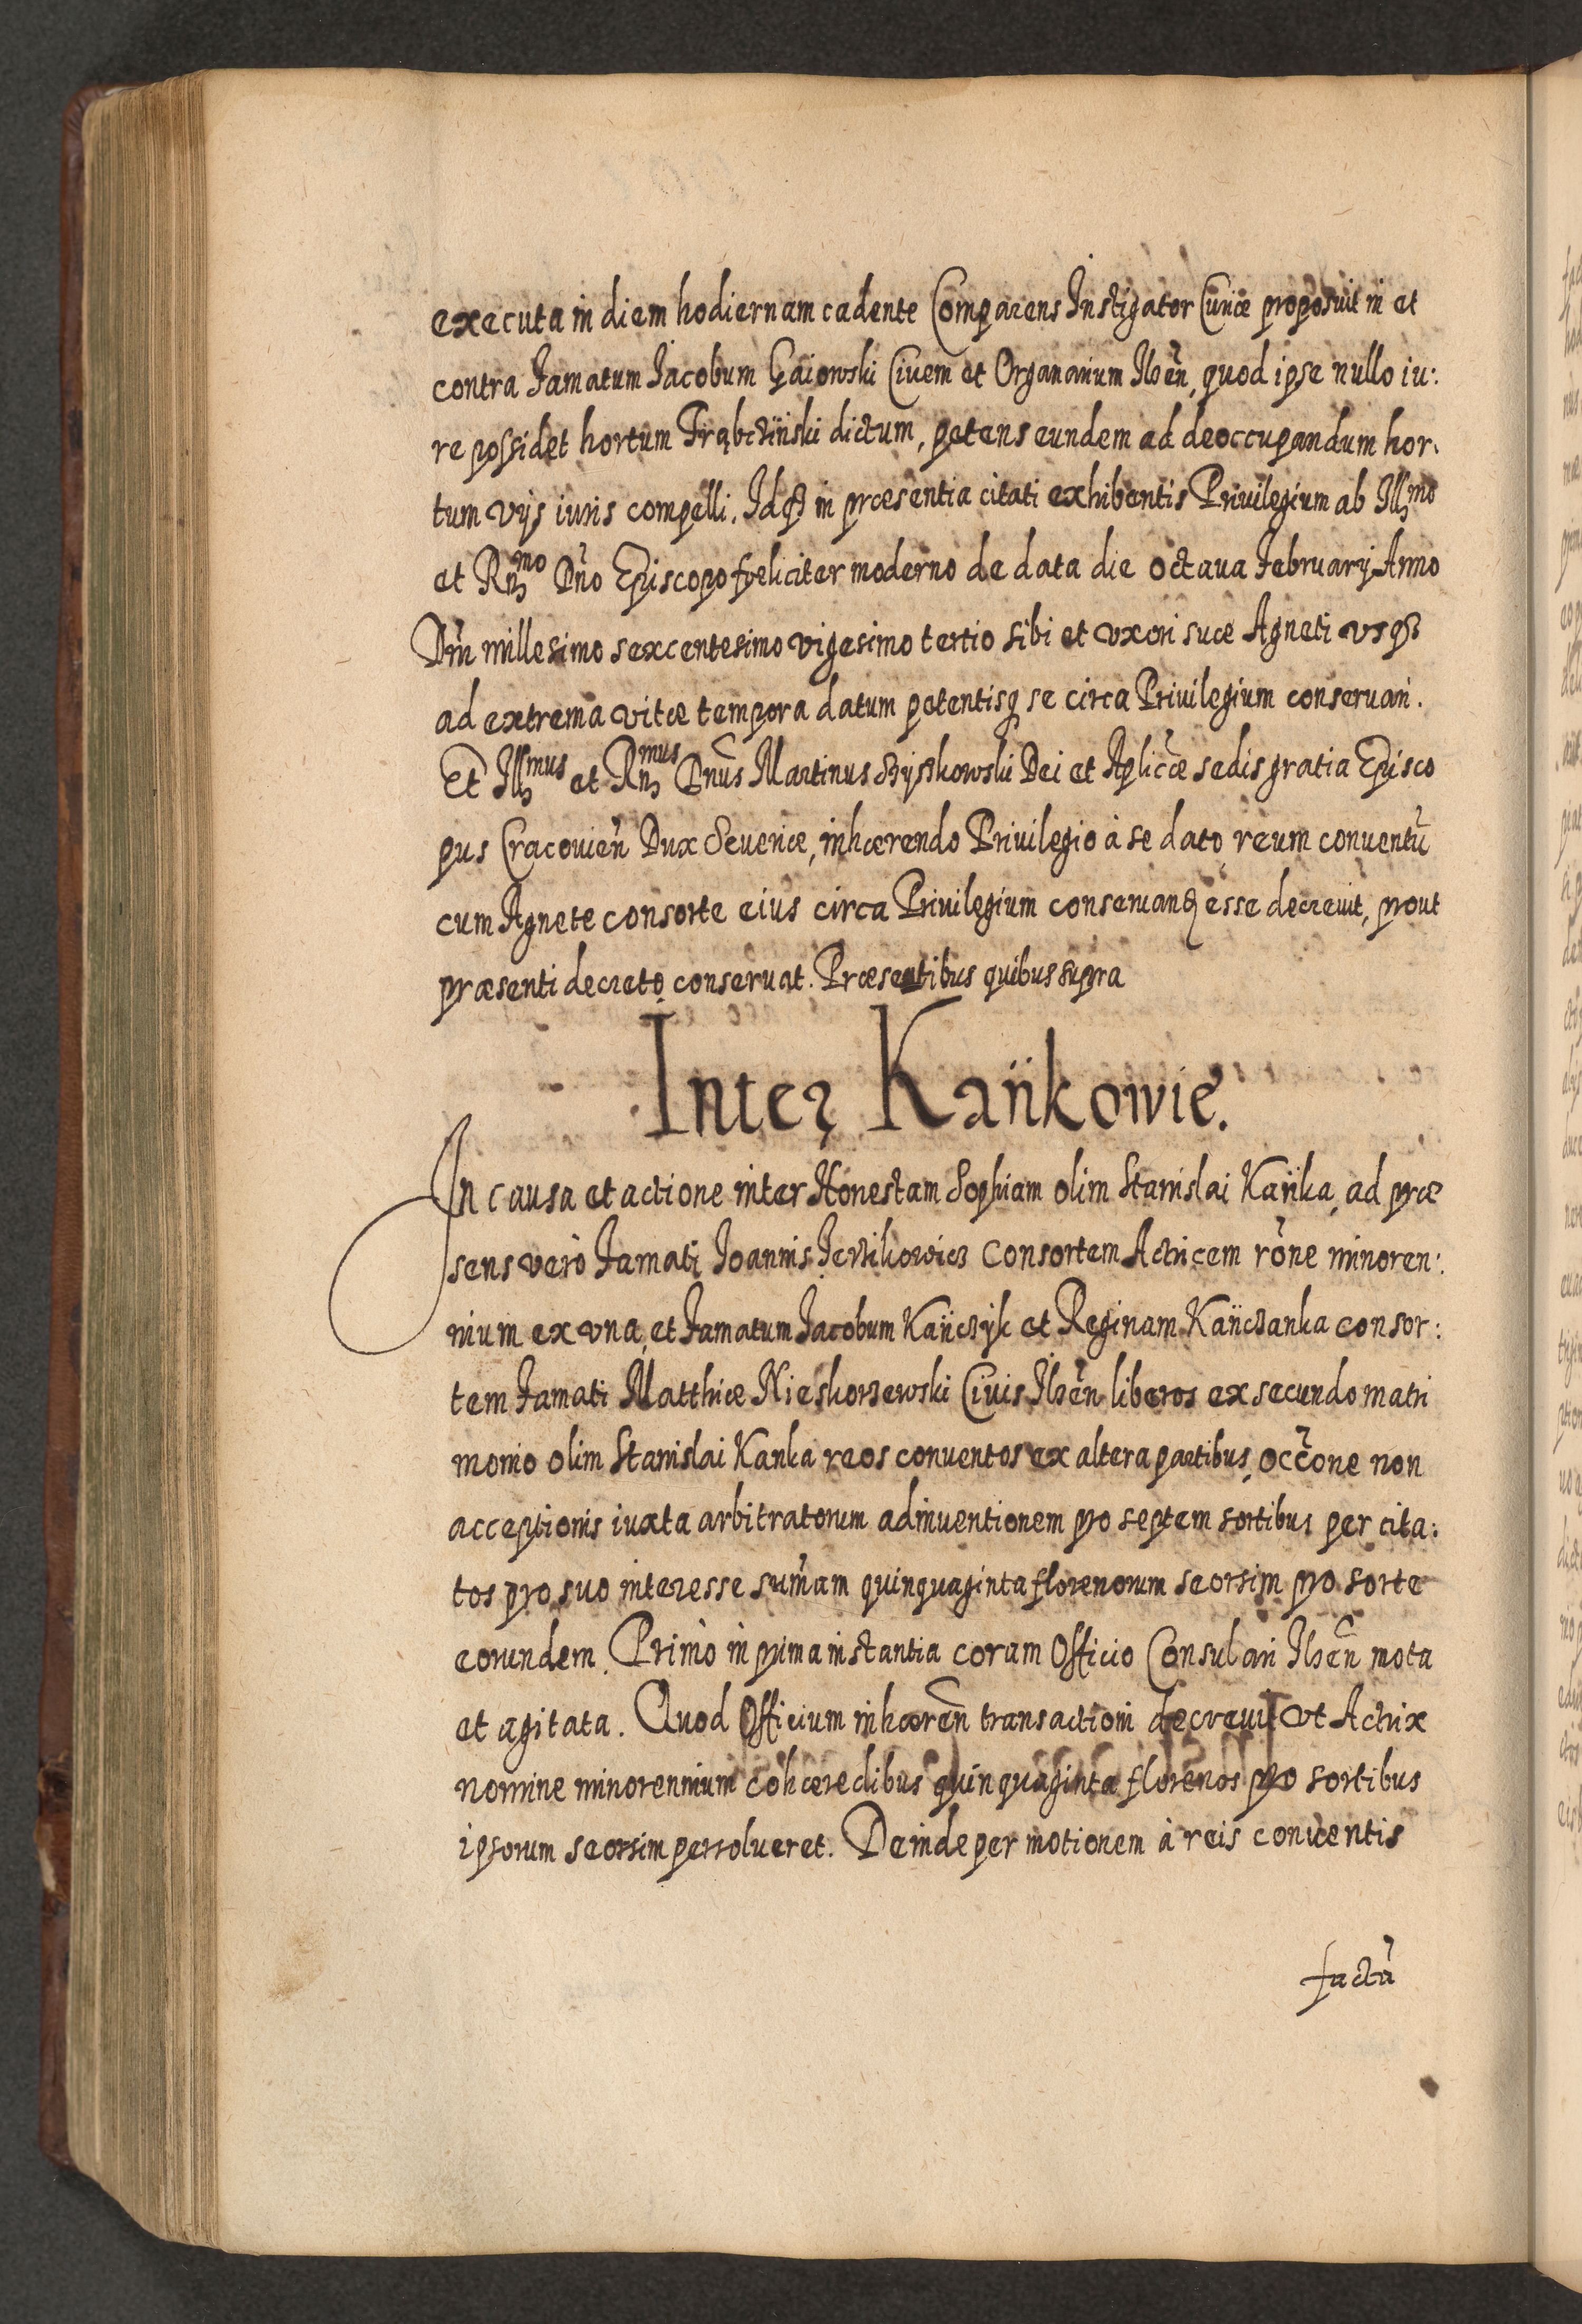 executa in diem hodiernam cadente Comparens Instigator Curiæ proposuit in et
contra Famatum Iacobum Gaiowski Ciuem et Organarium Ilzen̄, quod ipse nullo iu:
re possidet hortum Trąbczÿnski dictum, petens eundem ad deoccupandum hor.
tum vijs iuris compelli. Idqꝫ in præsentia citati exhibentis Priuilegium ab Illmo
et Rnmo Dn̄o Episcopo fæliciter moderno de data die octaua Februarij Anno
Dn̄i millesimo sexcentesimo vigesimo tertio sibi et vxori suæ Agneti vsqꝫ
ad extrema vitæ tempora datum petentisqꝫ se circa Priuilegium conseruari.
Et Illmus et Rnmus Dn̄us Martinus Szyszkowski Dei et Aplicæ sedis gratia Episco
pus Cracouien̄ Dux Seueriæ, inhærendo Priuilegio à se dato reum conuentū
cum Agnete consorte eius circa Priuilegium conseruandꝫ esse decreuit, prout
præsenti decreto conseruat. Præsentibus quibus supra
Inter Kańkowie.
In causa et actione inter Honestam Sophiam olim Stanislai Kańka, ad præ
sens verò Famati Ioannis Ierzikowicz Consortem Actricem rōne minoren:
nium ex vna, et Famatum Iacobum Kańczÿk et Reginam Kańczanka consor:
tem Famati Matthiæ Nieskorzewski Ciuis Ilzen̄ liberos ex secundo matri
monio olim Stanislai Kanka reos conuentos ex altera partibus, occ̄one non
acceptionis iuxta arbitratorum adinuentionem pro septem sortibus per cita:
tos pro suo interesse sum̄am quinquaginta florenorum seorsim pro sorte
eorundem. Primò in prima instantia coram Officio Consulari Ilzen̄ mota
et agitata. Quod Officium inhæren̄ transactioni decreuit vt Actrix
nomine minorennium cohæredibus quinquaginta florenos pro sortibus
ipsorum seorsim persolueret. Deinde per motionem à reis conuentis
factā